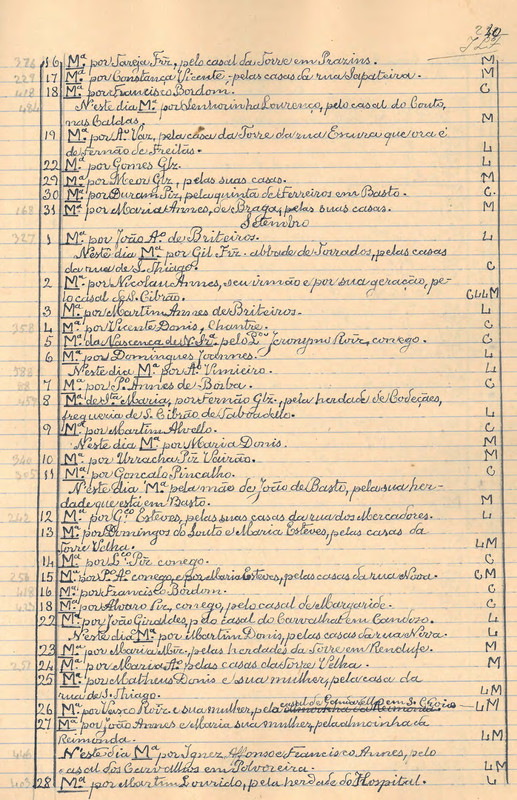 727
276 16 Mª. por Tareja Frz, pelo casal da Torre em Prazins. M
229 17 Mª por Constança Vicente, pelas casas da rua Sapateira. M
418 18 Mª por Francisco Bordom. C
484 N'este dia Mª. por Senhorinha Lourenço, pelo casal do Couto,
nas Caldas. M
19 Mª. por Aº Vaz, pela casa da Torre da rua Escura que ora é
de Fernão de Freitas. L
22 Mª por Gomes Glz. L
29 Mª por Meor Glz, pelas suas casas. M
30 Mª por Duram Piz, pela quinta de Ferreiros em Basto. C
168 31 Mª. por Maria Annes, de Braga, pelas suas casas. M
Setembro
327 1 Mª. por João Aº. de Briteiros. L
Neste dia Mª por Gil Frz. abbade de Torrados, pelas casas
da rua de S. Thiago. C
2 Mª. por Nicolau Annes, seu irmão e por sua geração, pe-
lo casal de S. Cibrão. CLLM
3 Mª. por Martim Annes de Briteiros. L
358 4 Mª por Vicente Donis, chantre. C
5 Mª. da Nascença de N. Srª. pelo Lᵈᵒ Jeronymo Roiz, conego. C
6 Mª por Domingues Joannes. L
588 N'este dia Mª por Aº. Vimieiro. L
7 Mª por Pº. Annes de Borba. C
8 Mª de Stª. Maria, por Fernão Glz., pela herdade de Codeçães,
freguezia de S. Cibrão de Taboadello. L
9 Mª por Martim Alvello. C
Neste dia Mª por Maria Donis. M
340 10 Mª por Urracha Piz Vairão. M
305 11 Mª por Gonçalo Pincalho. C
N'este dia Mª. pela mãe de João de Basto, pela sua her-
dade que está em Basto. M
242 12 Mª por Gᶜᵒ Esteves, pelas suas casas da rua dos Mercadores. L
13 Mª por Domingos do Souto e Maria Esteves, pelas casas da
Torre Velha. LM
14 Mª por Lᶜᵒ Piz conego. C
256 15 Mª por Pº. Aº conego, e por Maria Esteves, pelas casas da rua Nova. CM
418 16 Mª por Francisco Bordom. C
423 18 Mª por Alvaro Piz, conego, pelo casal de Margaride. C
22 Mª por João Giraldes, pelo casal do Carvalhal em Candoso. L
Neste dia Mª por Martim Donis, pelas casas da rua Nova. L
23 Mª por Maria Miz. pelas herdades da Torre em Rendufe. M
251 24 Mª. por Maria Aº. pelas casas da Torre Velha. M
25 Mª por Matheus Donis e sua mulher, pela casa da
rua de S. Thiago. LM
26 Mª por Vasco Roiz. e sua mulher, pelo casal de em S. LM
27 Mª por João Annes e Maria sua mulher, pela almoinha da
Raimonda. LM
466 N'este dia Mª por Ignez Affonso e Francisco Annes, pelo
casal dos Carvalhos em Polvoreira. LM
403 28 Mª por Martim Lourido, pela herdade do Hospital. L